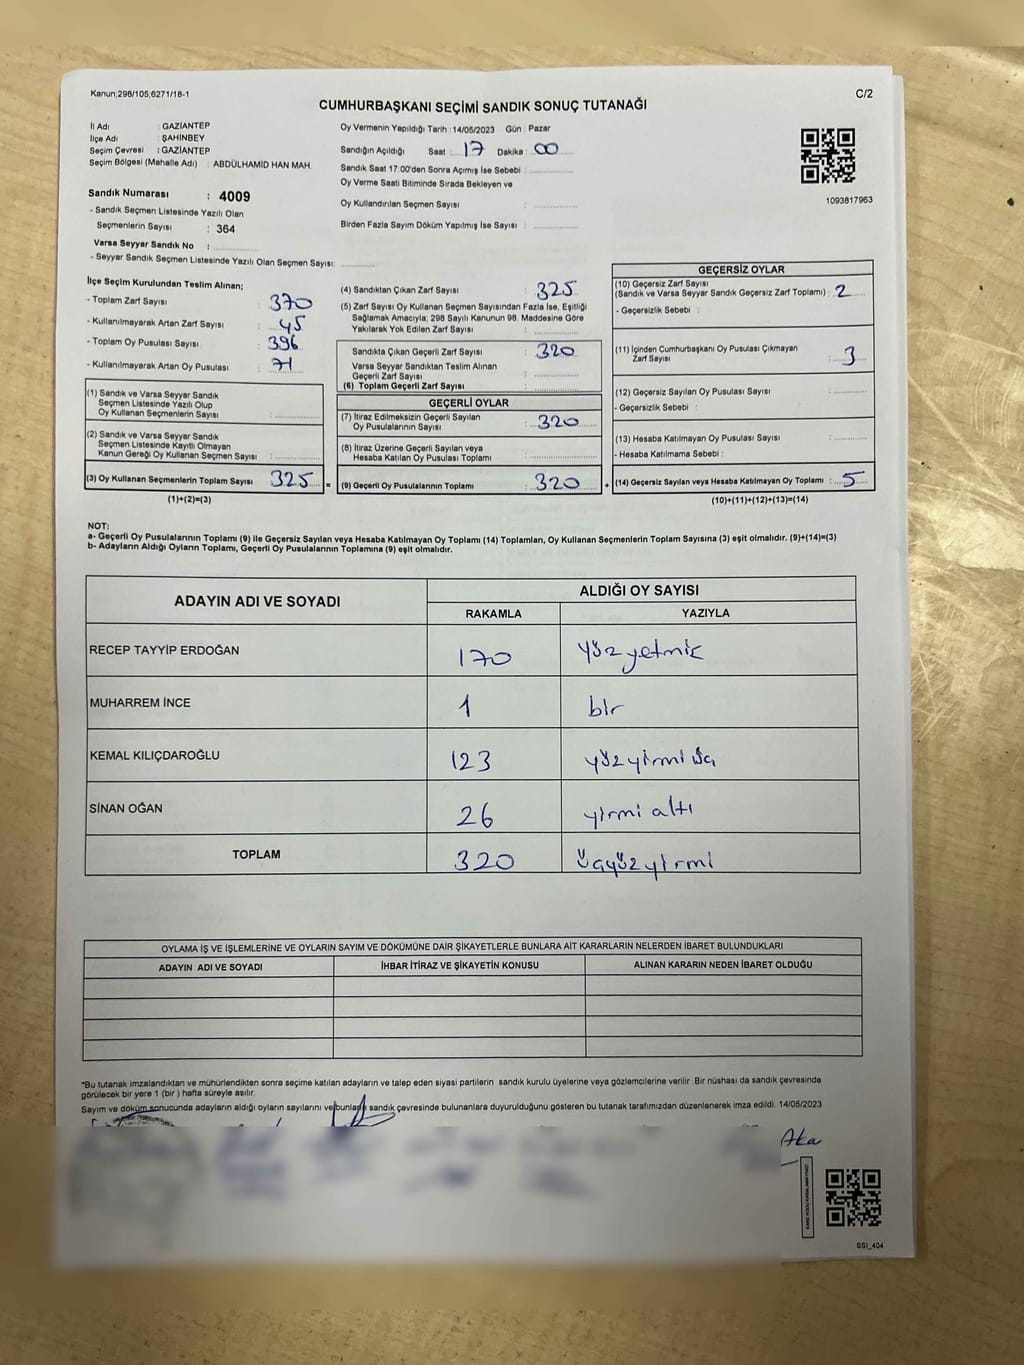 Kanun;298/105,6271/18-1
C/2
CUMHURBAŞKANI SEÇİMİ SANDIK SONUÇ TUTANAĞI
İl Adı : GAZİANTEP
İlçe Adı : ŞAHİNBEY
Seçim Çevresi : GAZİANTEP
Seçim Bölgesi (Mahalle Adı) : ABDÜLHAMİD HAN MAH.
Sandık Numarası : 4009
- Sandık Seçmen Listesinde Yazılı Olan
Seçmenlerin Sayısı : 364
Varsa Seyyar Sandık No :
- Seyyar Sandık Seçmen Listesinde Yazılı Olan Seçmen Sayısı:
Oy Vermenin Yapıldığı Tarih : 14/05/2023 Gün : Pazar
Sandığın Açıldığı Saat : 17 Dakika : 00
Sandık Saat 17:00'den Sonra Açımış İse Sebebi :
Oy Verme Saati Bitiminde Sırada Bekleyen ve
Oy Kullandırılan Seçmen Sayısı :
Birden Fazla Sayım Döküm Yapılmış İse Sayısı :
1093817963
İlçe Seçim Kurulundan Teslim Alınan;
- Toplam Zarf Sayısı : 370
- Kullanılmayarak Artan Zarf Sayısı : 45
- Toplam Oy Pusulası Sayısı : 396
- Kullanılmayarak Artan Oy Pusulası : 71
(1) Sandık ve Varsa Seyyar Sandık
Seçmen Listesinde Yazılı Olup
Oy Kullanan Seçmenlerin Sayısı :
(2) Sandık ve Varsa Seyyar Sandık
Seçmen Listesinde Kayıtlı Olmayan
Kanun Gereği Oy Kullanan Seçmen Sayısı :
(3) Oy Kullanan Seçmenlerin Toplam Sayısı : 325 =
(1)+(2)=(3)
(4) Sandıktan Çıkan Zarf Sayısı : 325
(5) Zarf Sayısı Oy Kullanan Seçmen Sayısından Fazla İse, Eşitliği
Sağlamak Amacıyla; 298 Sayılı Kanunun 98. Maddesine Göre
Yakılarak Yok Edilen Zarf Sayısı :
Sandıkta Çıkan Geçerli Zarf Sayısı : 320
Varsa Seyyar Sandıktan Teslim Alınan
Geçerli Zarf Sayısı :
(6) Toplam Geçerli Zarf Sayısı :
GEÇERLİ OYLAR
(7) İtiraz Edilmeksizin Geçerli Sayılan
Oy Pusulalarının Sayısı : 320
(8) İtiraz Üzerine Geçerli Sayılan veya
Hesaba Katılan Oy Pusulası Toplamı :
(9) Geçerli Oy Pusulalarının Toplamı : 320 +
GEÇERSİZ OYLAR
(10) Geçersiz Zarf Sayısı
(Sandık ve Varsa Seyyar Sandık Geçersiz Zarf Toplamı) : 2
- Geçersizlik Sebebi :
(11) İçinden Cumhurbaşkanı Oy Pusulası Çıkmayan
Zarf Sayısı : 3
(12) Geçersiz Sayılan Oy Pusulası Sayısı :
- Geçersizlik Sebebi :
(13) Hesaba Katılmayan Oy Pusulası Sayısı :
- Hesaba Katılmama Sebebi :
(14) Geçersiz Sayılan veya Hesaba Katılmayan Oy Toplamı : 5
(10)+(11)+(12)+(13)=(14)
NOT:
a- Geçerli Oy Pusulalarının Toplamı (9) ile Geçersiz Sayılan veya Hesaba Katılmayan Oy Toplamı (14) Toplamları, Oy Kullanan Seçmenlerin Toplam Sayısına (3) eşit olmalıdır. (9)+(14)=(3)
b- Adayların Aldığı Oyların Toplamı, Geçerli Oy Pusulalarının Toplamına (9) eşit olmalıdır.
ADAYIN ADI VE SOYADI
ALDIĞI OY SAYISI
RAKAMLA YAZIYLA
RECEP TAYYİP ERDOĞAN 170 yüzyetmiş
MUHARREM İNCE 1 bir
KEMAL KILIÇDAROĞLU 123 yüzyirmi üç
SİNAN OĞAN 26 yirmi altı
TOPLAM 320 üçyüzyirmi
OYLAMA İŞ VE İŞLEMLERİNE VE OYLARIN SAYIM VE DÖKÜMÜNE DAİR ŞİKAYETLERLE BUNLARA AİT KARARLARIN NELERDEN İBARET BULUNDUKLARI
ADAYIN ADI VE SOYADI İHBAR İTİRAZ VE ŞİKAYETİN KONUSU ALINAN KARARIN NEDEN İBARET OLDUĞU
*Bu tutanak imzalandıktan ve mühürlendikten sonra seçime katılan adayların ve talep eden siyasi partilerin sandık kurulu üyelerine veya gözlemcilerine verilir .Bir nüshası da sandık çevresinde
görülecek bir yere 1 (bir ) hafta süreyle asılır.
Sayım ve döküm sonucunda adayların aldığı oyların sayılarını ve bunların sandık çevresinde bulunanlara duyurulduğunu gösteren bu tutanak tarafımızdan düzenlenerek imza edildi. 14/05/2023
Aka
SSI_404